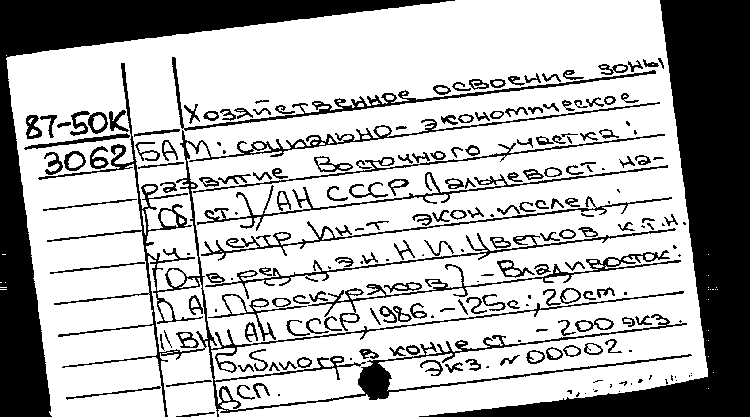 Хозяйственное освоение зоны
87-50К
3062
БАМ: социально-экономическое
развитие Восточного участка:
[Сб. ст.]/АН СССР, Дальневост. на-
уч. центр, Ин-т экон. исслед.;
[Отв. ред. д.э.н. Н.И. Цветков, к.т.н.
П.А. Проскуряков]. - Владивосток:
ДВНЦ АН СССР, 1986. - 125с.; 20см.
Библиогр. в конце ст. - 200 экз.
ДСП. Экз. №00002.